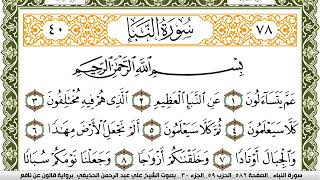 ٧٨ سُورَةُ النَّبَإِ ٤٠
بِسْمِ اللَّهِ الرَّحْمَٰنِ الرَّحِيمِ
عَمَّ يَتَسَآءَلُونَ ١ عَنِ النَّبَإِ الْعَظِيمِ ٢ الَّذِى هُمْ فِيهِ مُخْتَلِفُونَ ٣
كَلَّا سَيَعْلَمُونَ ٤ ثُمَّ كَلَّا سَيَعْلَمُونَ ٥ أَلَمْ نَجْعَلِ الْأَرْضَ مِهَٰدًا ٦
وَالْجِبَالَ أَوْتَادًا ٧ وَخَلَقْنَٰكُمْ أَزْوَٰجًا ٨ وَجَعَلْنَا نَوْمَكُمْ سُبَاتًا
سورة النباء الصفحة ٥٨٢ الحزب ٥٩ الجزء ٣٠ بصوت الشيخ علي عبد الرحمن الحذيفي برواية قالون عن نافع